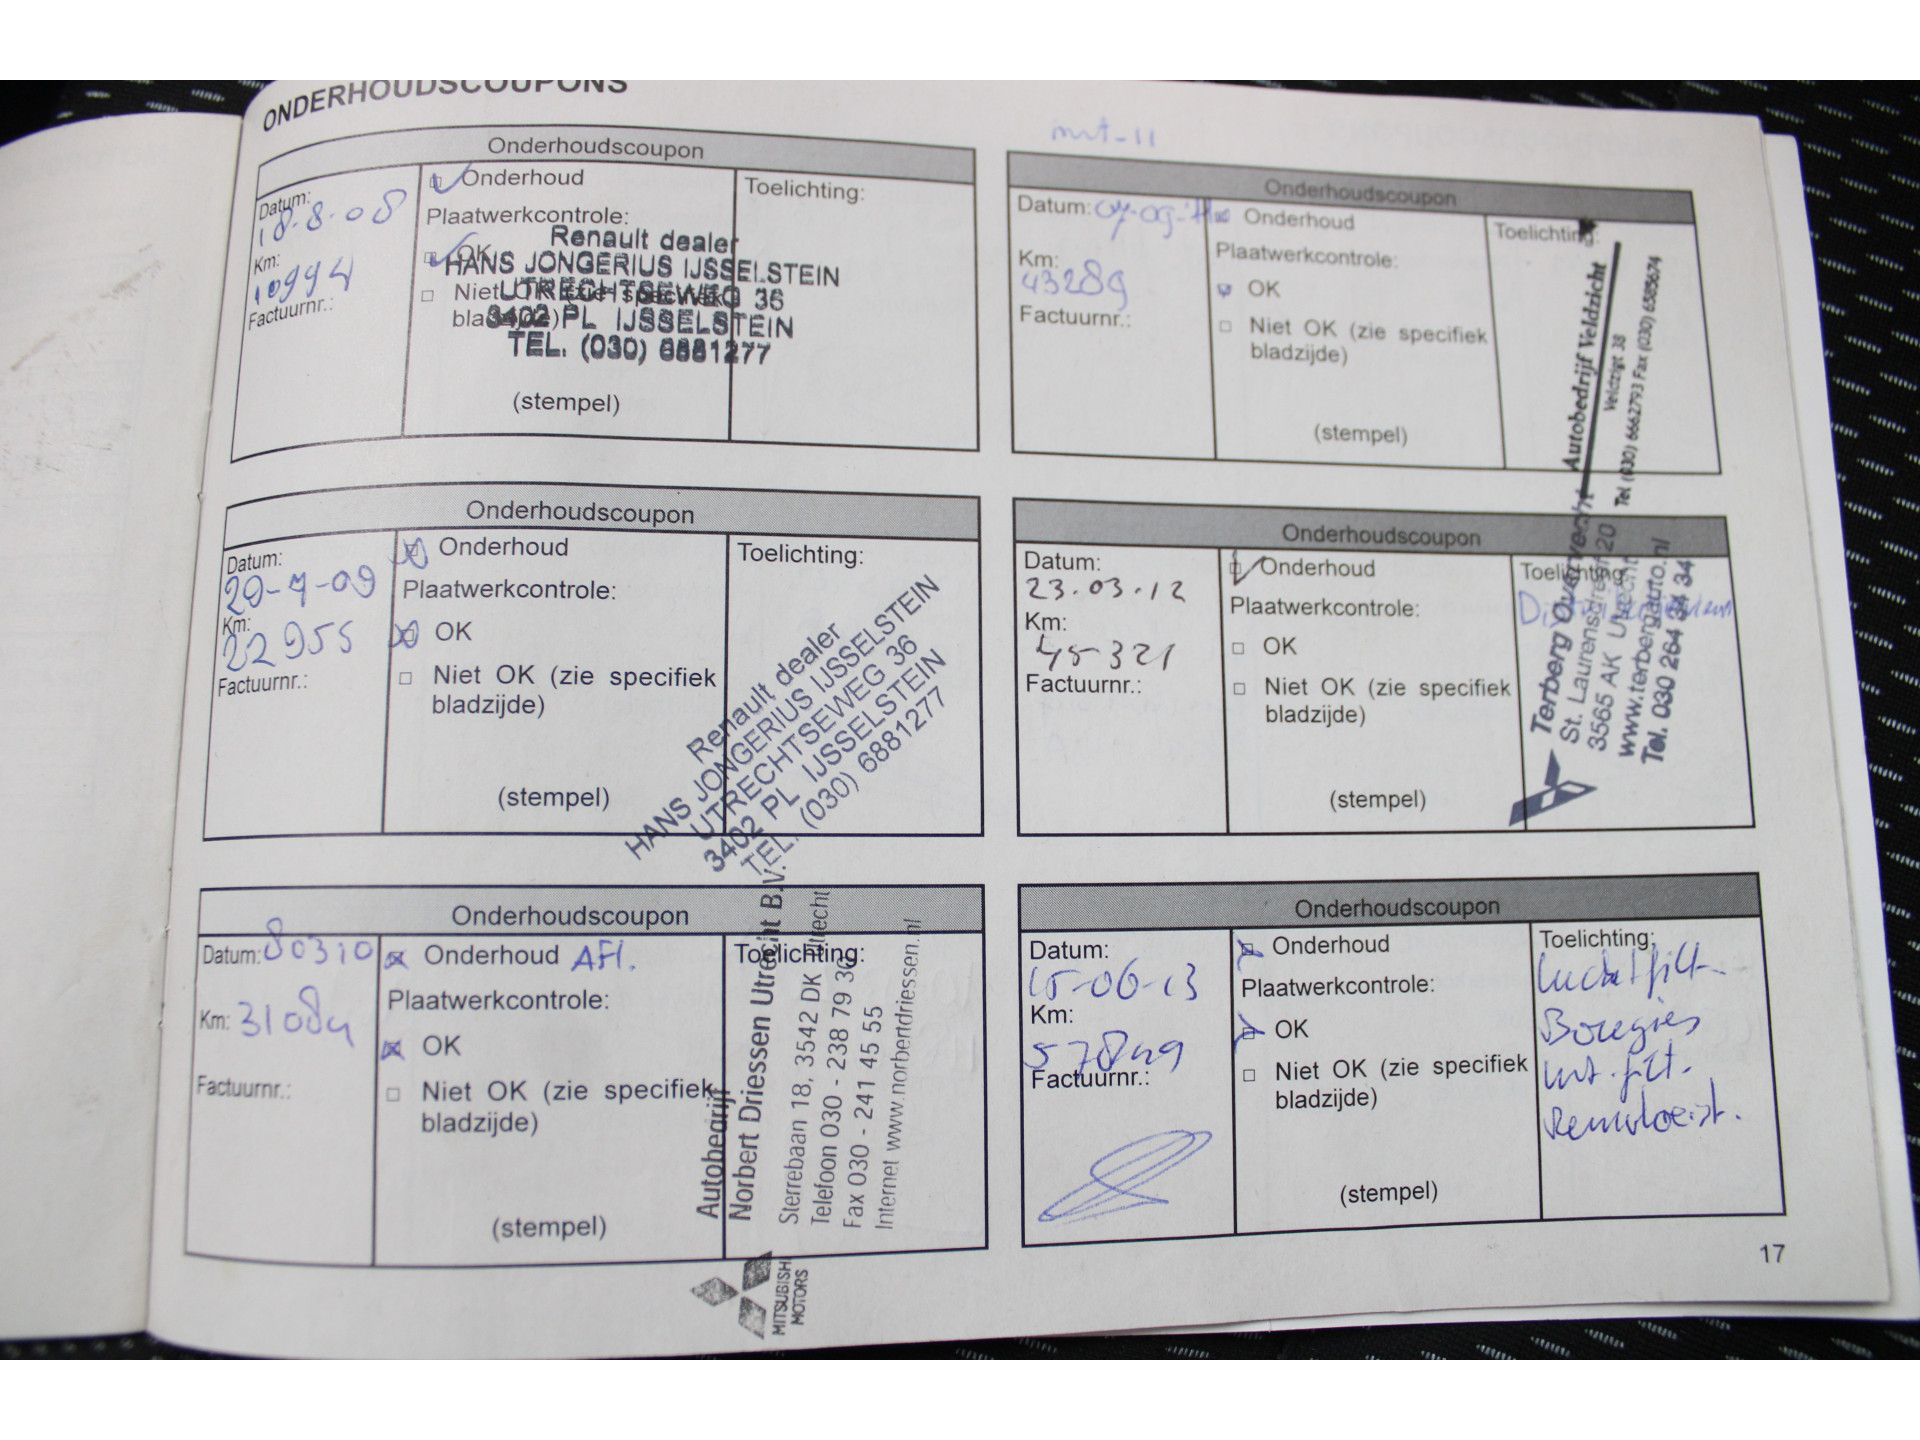 ONDERHOUDSCOUPONS
Onderhoudscoupon
Datum:
18-8-08
Km:
10994
Factuurnr.:
Onderhoud
Plaatwerkcontrole:
OK
Niet OK (zie specifiek
bladzijde)
(stempel)
Toelichting:
Renault dealer
HANS JONGERIUS IJSSELSTEIN
UTRECHTSEWEG 36
3402 PL IJSSELSTEIN
TEL. (030) 6881277
Onderhoudscoupon
Datum:
Km:
22955
Factuurnr.:
Onderhoud
Plaatwerkcontrole:
OK
Niet OK (zie specifiek
bladzijde)
(stempel)
Toelichting:
Renault dealer
HANS JONGERIUS IJSSELSTEIN
UTRECHTSEWEG 36
3402 PL IJSSELSTEIN
TEL. (030) 6881277
Onderhoudscoupon
Datum: 80310
Km:
Factuurnr.:
Onderhoud AFl.
Plaatwerkcontrole:
OK
Niet OK (zie specifiek
bladzijde)
(stempel)
Toelichting:
Autobedrijf
Norbert Driessen Utrecht B.V.
Sterrebaan 18, 3542 DK Utrecht
Telefoon 030 - 238 79 36
Fax 030 - 241 45 55
Internet www.norbertdriessen.nl
MITSUBISHI
MOTORS
Onderhoudscoupon
Datum:
Km:
43289
Factuurnr.:
Onderhoud
Plaatwerkcontrole:
OK
Niet OK (zie specifiek
bladzijde)
(stempel)
Toelichting:
Autobedrijf Veldzicht
Veldzigt 38
Tel (030) 6662793 Fax (030) 6585674
Onderhoudscoupon
Datum:
23.03.12
Km:
45321
Factuurnr.:
Onderhoud
Plaatwerkcontrole:
OK
Niet OK (zie specifiek
bladzijde)
(stempel)
Toelichting:
Terberg Overvecht
St. Laurensdreef 20
3565 AK Utrecht
www.terbergauto.nl
Tel. 030 264 34 34
Onderhoudscoupon
Datum:
15-06-13
Km:
57849
Factuurnr.:
Onderhoud
Plaatwerkcontrole:
OK
Niet OK (zie specifiek
bladzijde)
(stempel)
Toelichting:
Luchtfilt.
Bougies
Int. filt.
Remvloeist.
17